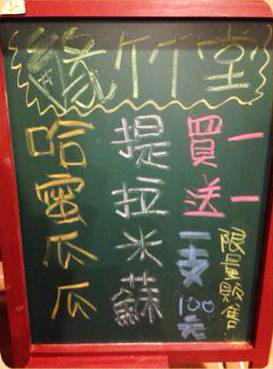 緣竹堂
買一送一
限量販售
一支100元
提拉米蘇
哈蜜瓜瓜